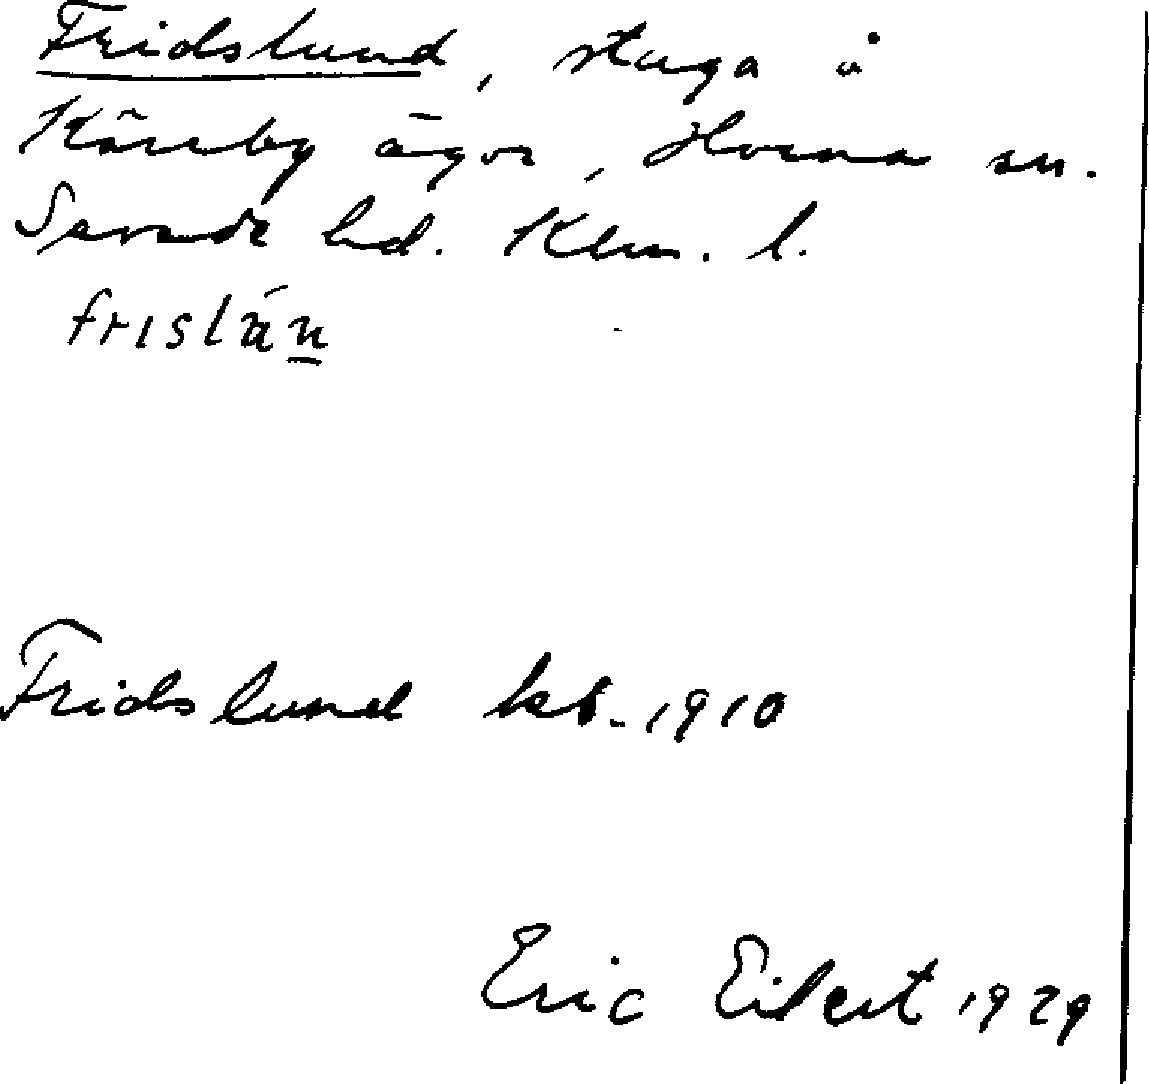 Fridslund, stuga å
Kärrby ägor, Horna sn.
Sevede hd. Klm. l.
frislán
Fridslund kb. 1910
Eric Eilert 1929